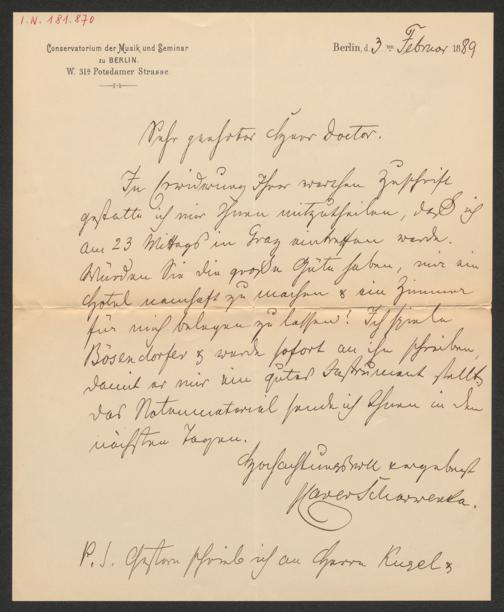 I.N. 181.870
Conservatorium der Musik und Seminar
zu BERLIN.
W. 31a Potsdamer Strasse
Berlin, d. 3ten Februar 1889
Sehr geehrter Herr Doctor.
In Erwiderung Ihrer werthen Zuschrift
gestatte ich mir Ihnen mitzutheilen, daß ich
am 23 Mittags in Graz eintreffen werde.
Würden Sie die große Güte haben, mir ein
Hôtel namhaft zu machen & ein Zimmer
für mich belegen zu lassen! Ich spiele
Bösendorfer & werde sofort an ihn schreiben,
damit er mir ein gutes Instrument stellt.
Das Notenmaterial sende ich Ihnen in den
nächsten Tagen.
Hochachtungsvoll ergebenst
Xaver Scharwenka.
P.S. Gestern schrieb ich an Herrn Kugel &